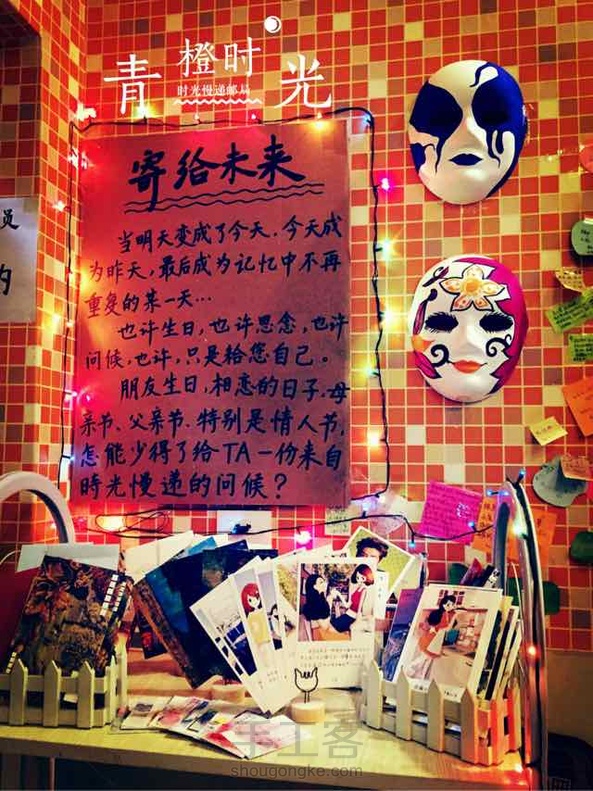 青橙时光
时光慢递邮局
寄给未来
当明天变成了今天.今天成
为昨天,最后成为记忆中不再
重复的某一天…
也许生日,也许思念,也许
问候,也许,只是给您自己。
朋友生日,相恋的日子.母
亲节、父亲节.特别是情人节,
怎能少得了给TA一份来自
時光慢递的问候?
员
的
手工客
shougongke.com